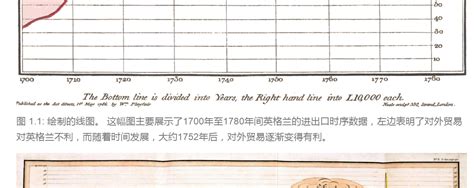 50
40
30
20
10
1700 1710 1720 1730 1740 1750 1760 1770 1780
The Bottom line is divided into Years, the Right hand line into L10,000 each.
Published as the Act directs, 1st May 1786, by Wm Playfair
Neele sculpt 352, Strand, London.
图 1.1: 绘制的线图。 这幅图主要展示了1700年至1780年间英格兰的进出口时序数据，左边表明了对外贸易
对英格兰不利，而随着时间发展，大约1752年后，对外贸易逐渐变得有利。